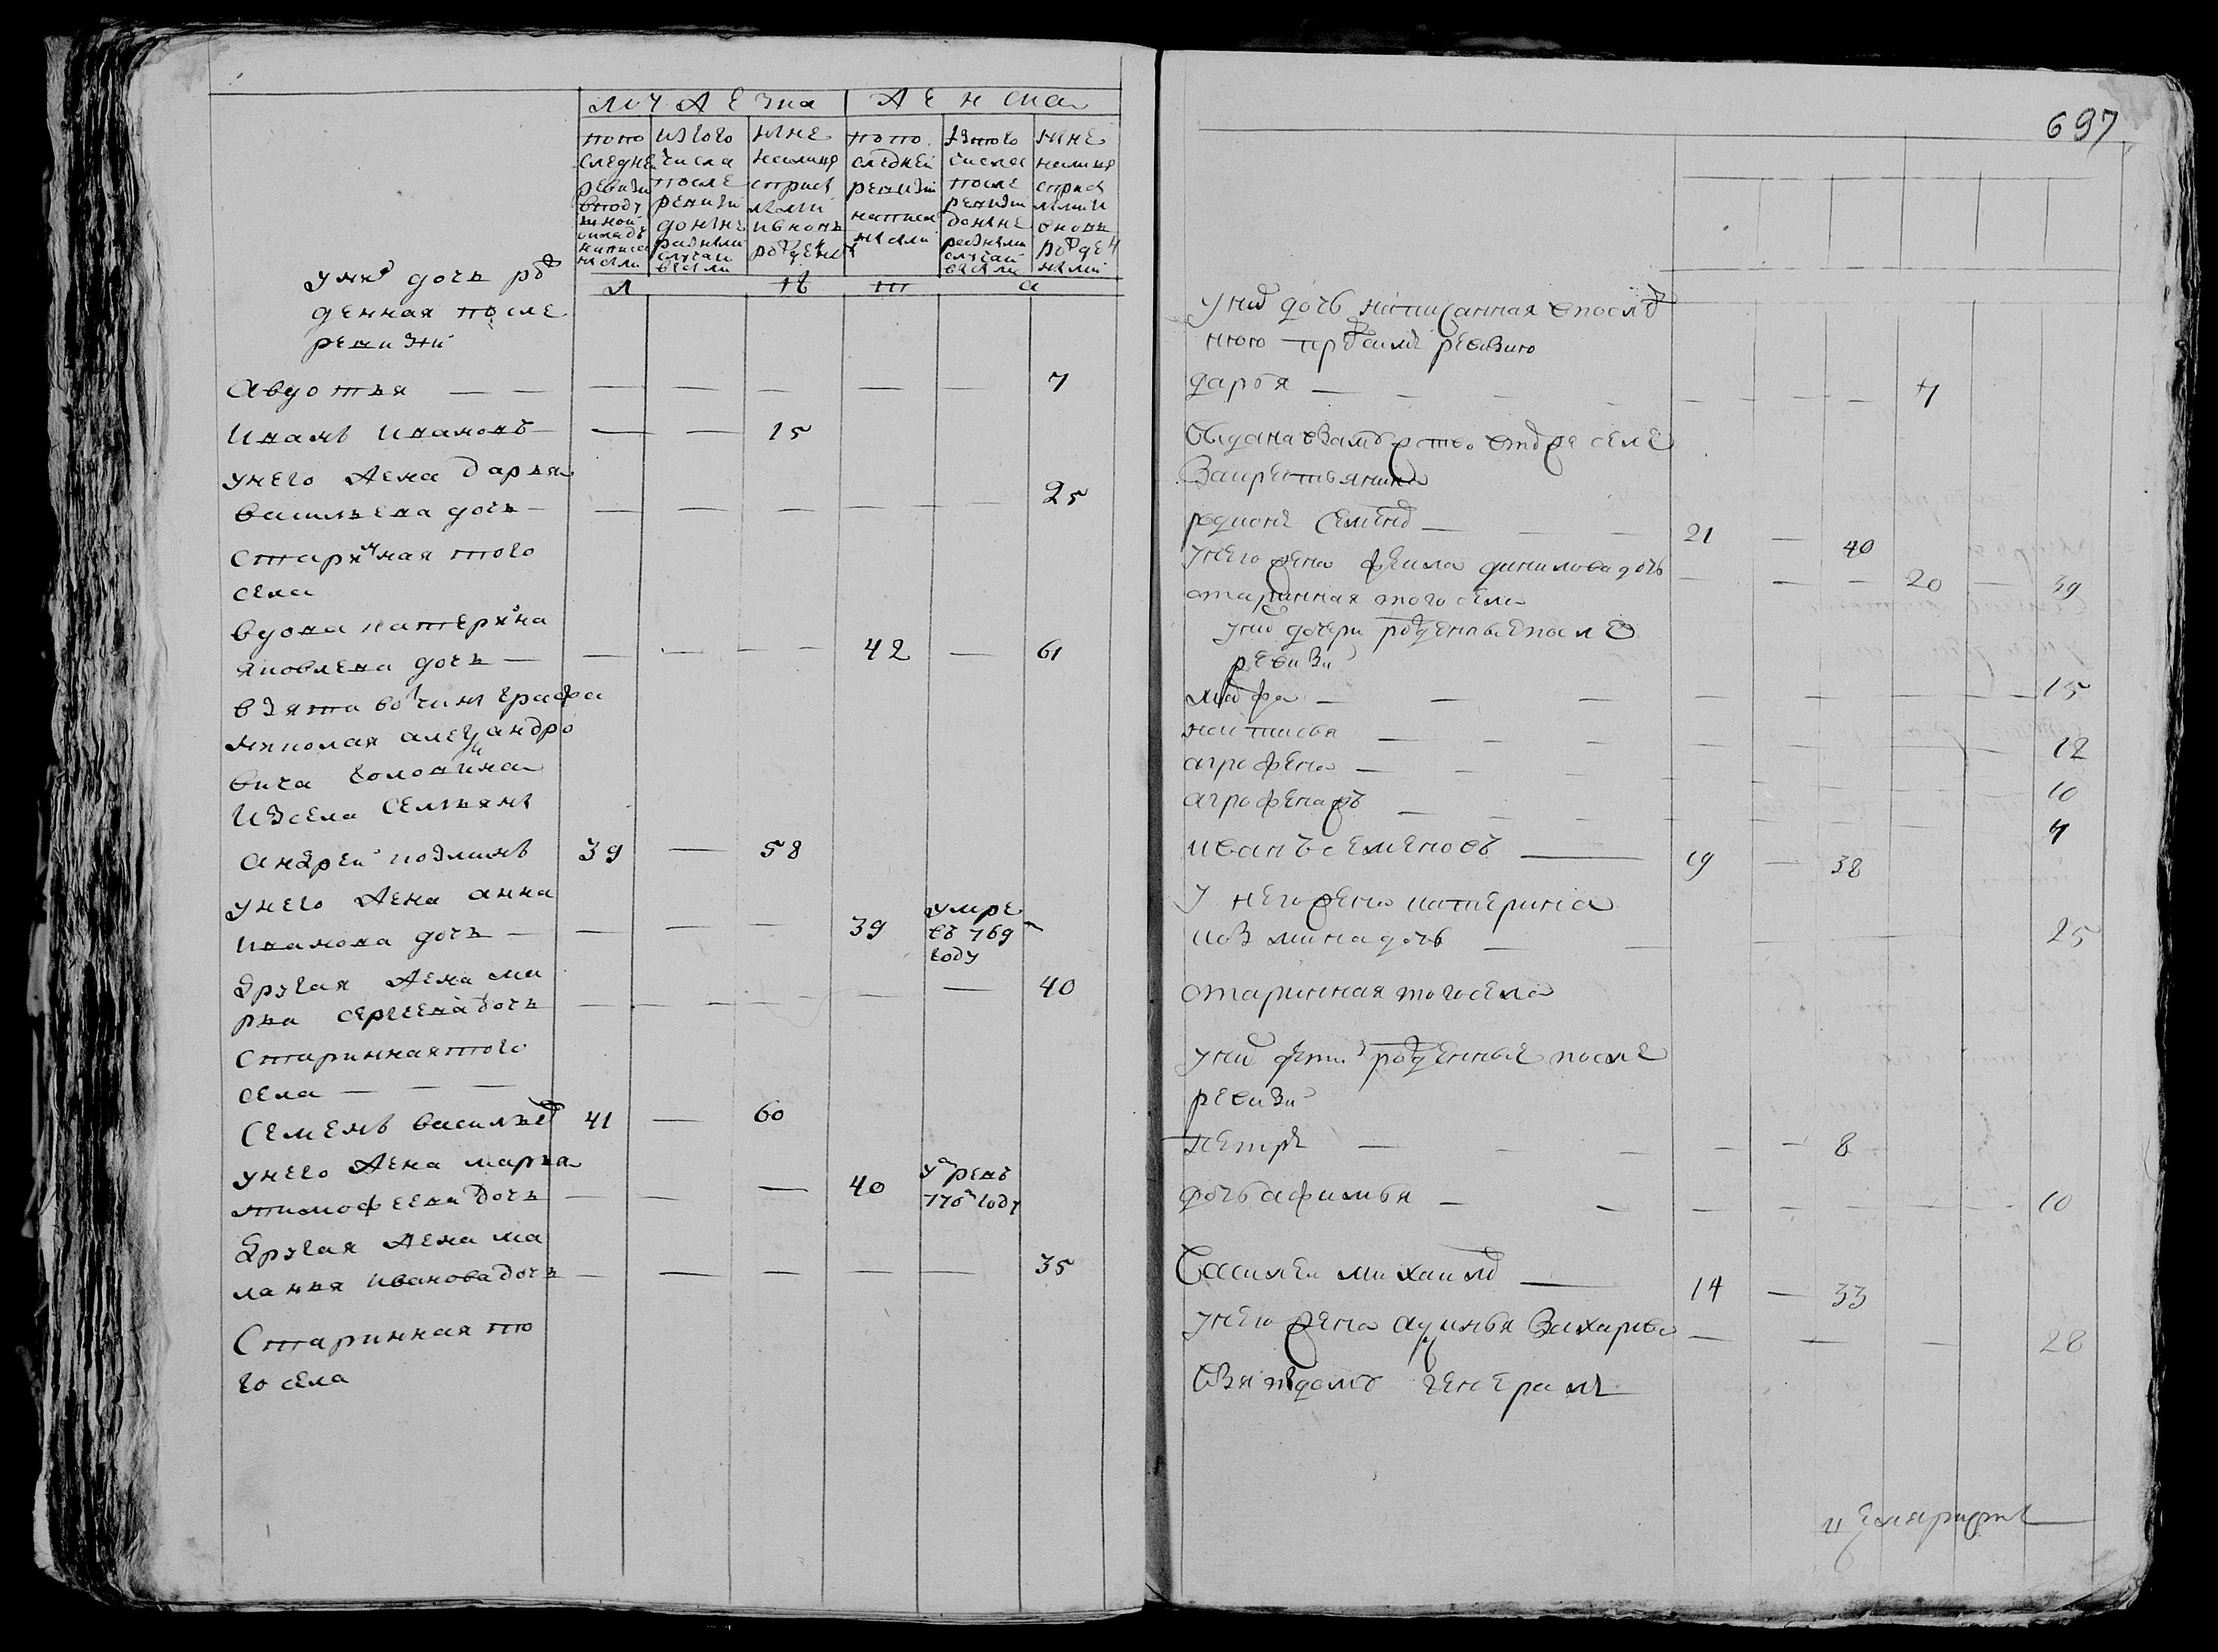 мужеска женска
попо
следней
ревизии
вподу
шной
окладъ
написа
ныхъли
изтого
числа
после
ревизи
доныне
разными
случаи
выбыли
ныне
налицо
стрыхъ
лѣты
ивновь
рожденны
попо
следней
ревизии
написа
ныхъли
изтого
числа
после
ревизи
доныне
разными
случаи
выбыли
ныне
налицо
стрыхъ
лѣты
вновь
рожден
ными
л ѣ т а
унихъ дочь рож
денная после
ревизии
авдотья — — — — — — — 7
иванъ ивановъ — — — 15
унего жена дарья
васильева дочь — — — — — — 25
старинная того
села
вдова катерина
яковлева дочь — — — — 42 — 61
взята вотчины графа
николая александро
вича головина
изсела
андреи козминъ 39 — 58
унего жена анна
иванова дочь — — — — 39 умре
въ 769
году
другая жена ма
рья сергеевадочь — — — — — — 40
стариннаятого
села — — —
семенъ васильевъ 41 — 60
унего жена марья
тимофеева дочь — — — 40 умре въ
776 году
другая жена ма
ланья ивановадочь — — — — — 35
старинная то
го села
697
унихъ дочь написанная впослед
нюю предсимъ ревизию
дарья — — — — — 4
выдана взамужство втомже селе
закрестьянина
родионъ семеновъ — 21 — 40
унего жена фекла данилова дочь — — — 20 — 39
старинная того села
унихъ дочери рожденные после
ревизии
марфа — — — — 15
настасья — — — 12
агрофена — — — 10
агрофенажъ — — — 4
иванъ семеновъ — 19 — 38
у него жена катерина
козминадочь — — 25
старинная тогосела
унихъ дети рожденные после
ревизии
петръ — — — 8
дочь афимья — — — 10
василеи михаиловъ — 14 — 33
унего жена аксинья захарова — — — 28
взята вдомъ генерала